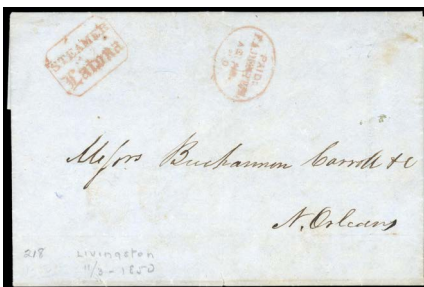 STEAMER
Latona
PAID
Messrs Buchannon Carroll & C
N. Orleans
218
Livingston
11/3-1850